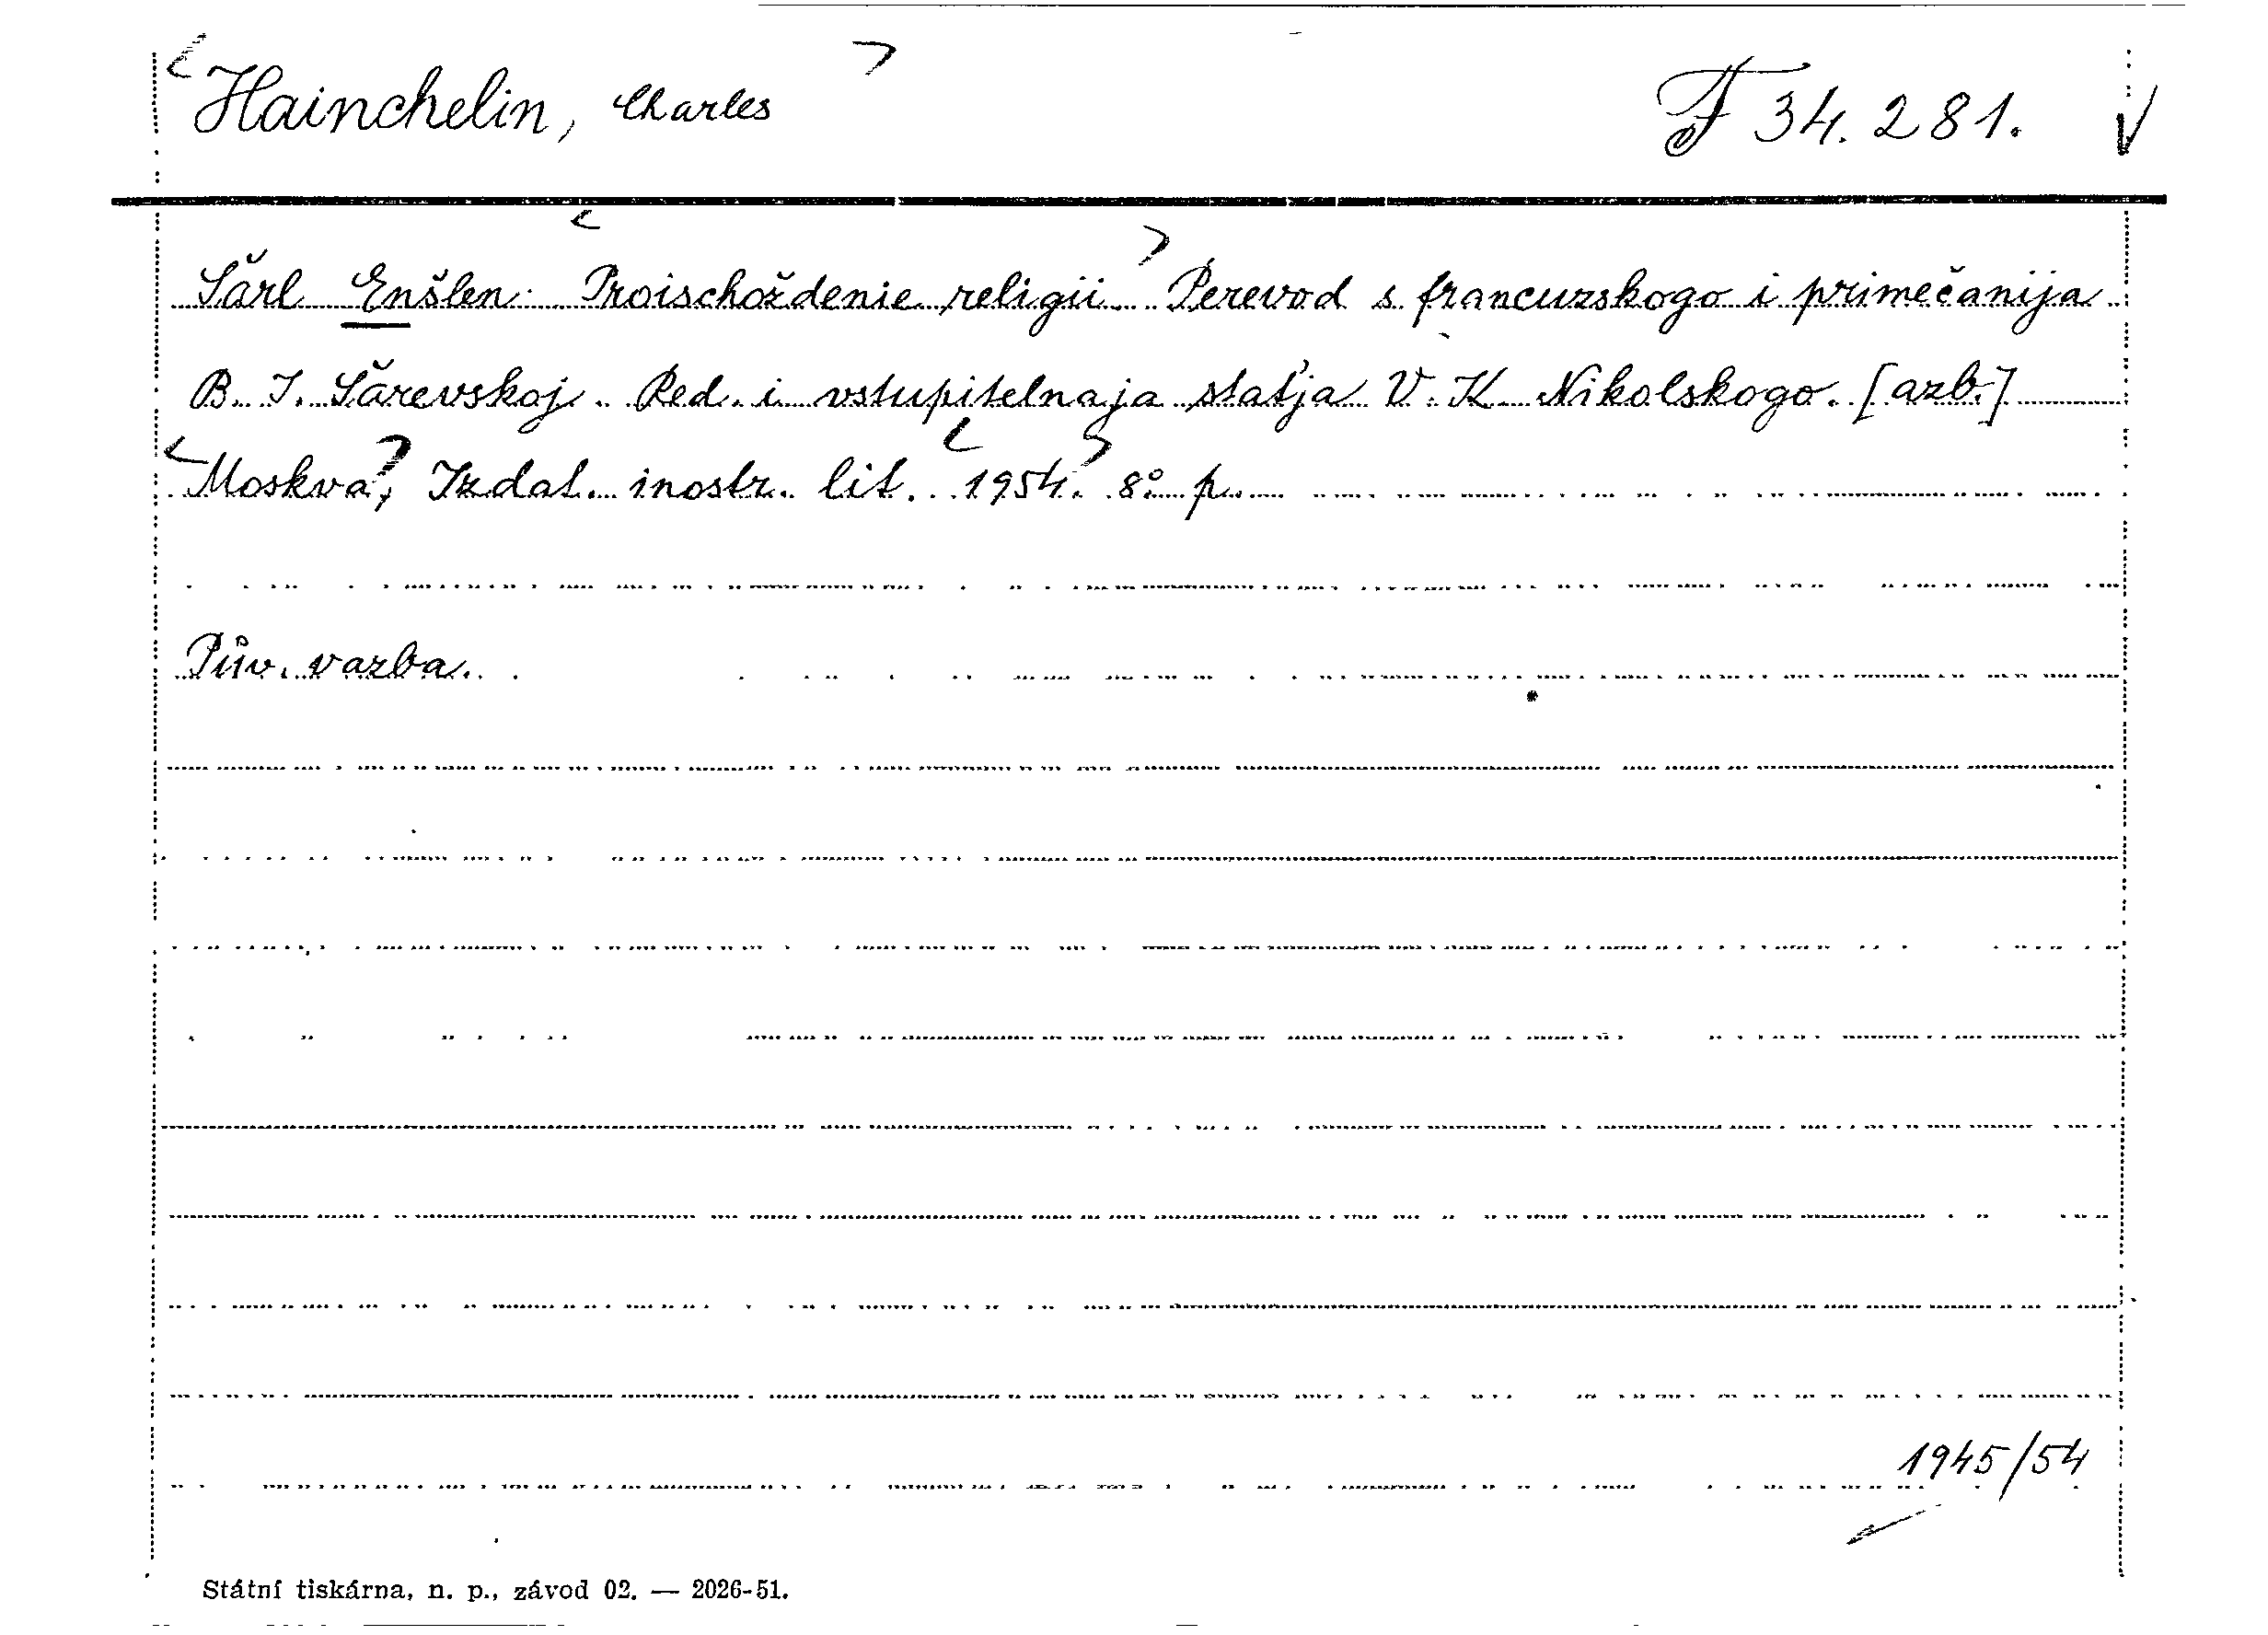 Hainchelin, Charles F 34.281.
Šarl Enšlen. Proischoždenie religii. Perevod s francuzskogo i primečanija
B. I. Šarevskoj. Red. i vstupitelnaja staťja V. K. Nikolskogo. [azb.]
Moskva, Izdat. inostr. lit. 1954. 8° p.
Pův. vazba.
1945/54
Státní tiskárna, n. p., závod 02. — 2026-51.